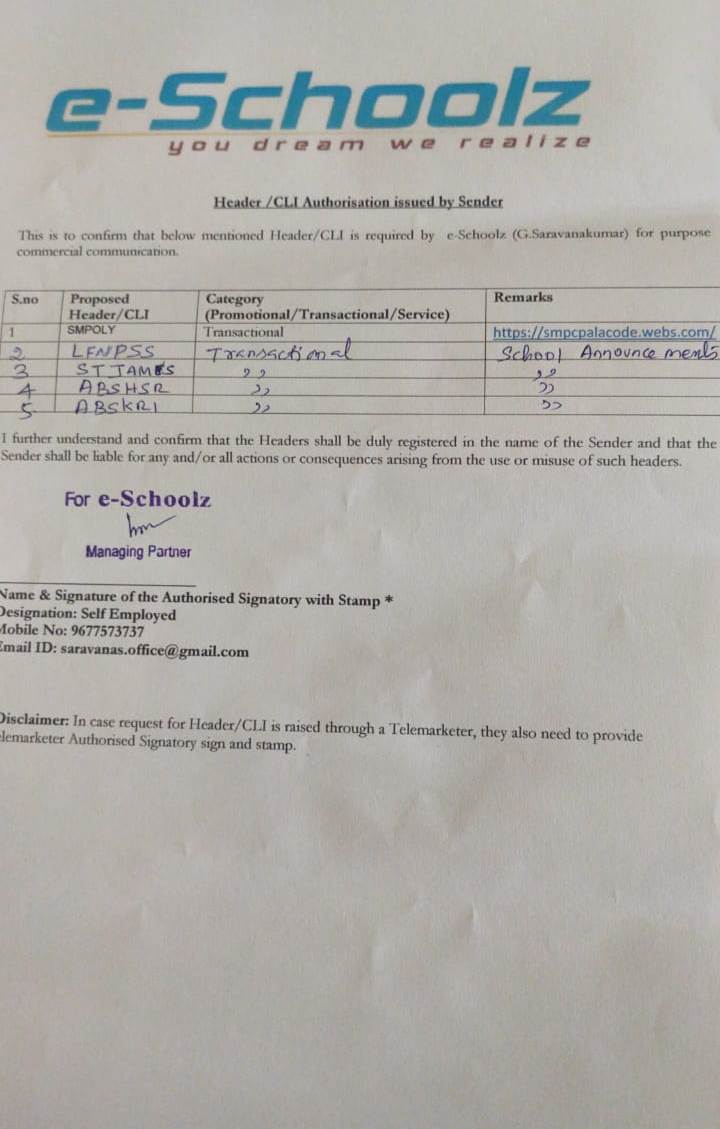 e-Schoolz
you dream we realize
Header /CLI Authorisation issued by Sender
This is to confirm that below mentioned Header/CLI is required by e-Schoolz (G.Saravanakumar) for purpose
commercial communication.
S.no Proposed Header/CLI Category (Promotional/Transactional/Service) Remarks
1 SMPOLY Transactional https://smpcpalacode.webs.com/
2 LFNPSS Transactional School Announcements
3 STJAMES ,, ,,
4 ABSHSR ,, ,,
5 ABSKRI ,, ,,
I further understand and confirm that the Headers shall be duly registered in the name of the Sender and that the
Sender shall be liable for any and/or all actions or consequences arising from the use or misuse of such headers.
For e-Schoolz
Managing Partner
Name & Signature of the Authorised Signatory with Stamp *
Designation: Self Employed
Mobile No: 9677573737
Email ID: saravanas.office@gmail.com
Disclaimer: In case request for Header/CLI is raised through a Telemarketer, they also need to provide
elemarketer Authorised Signatory sign and stamp.